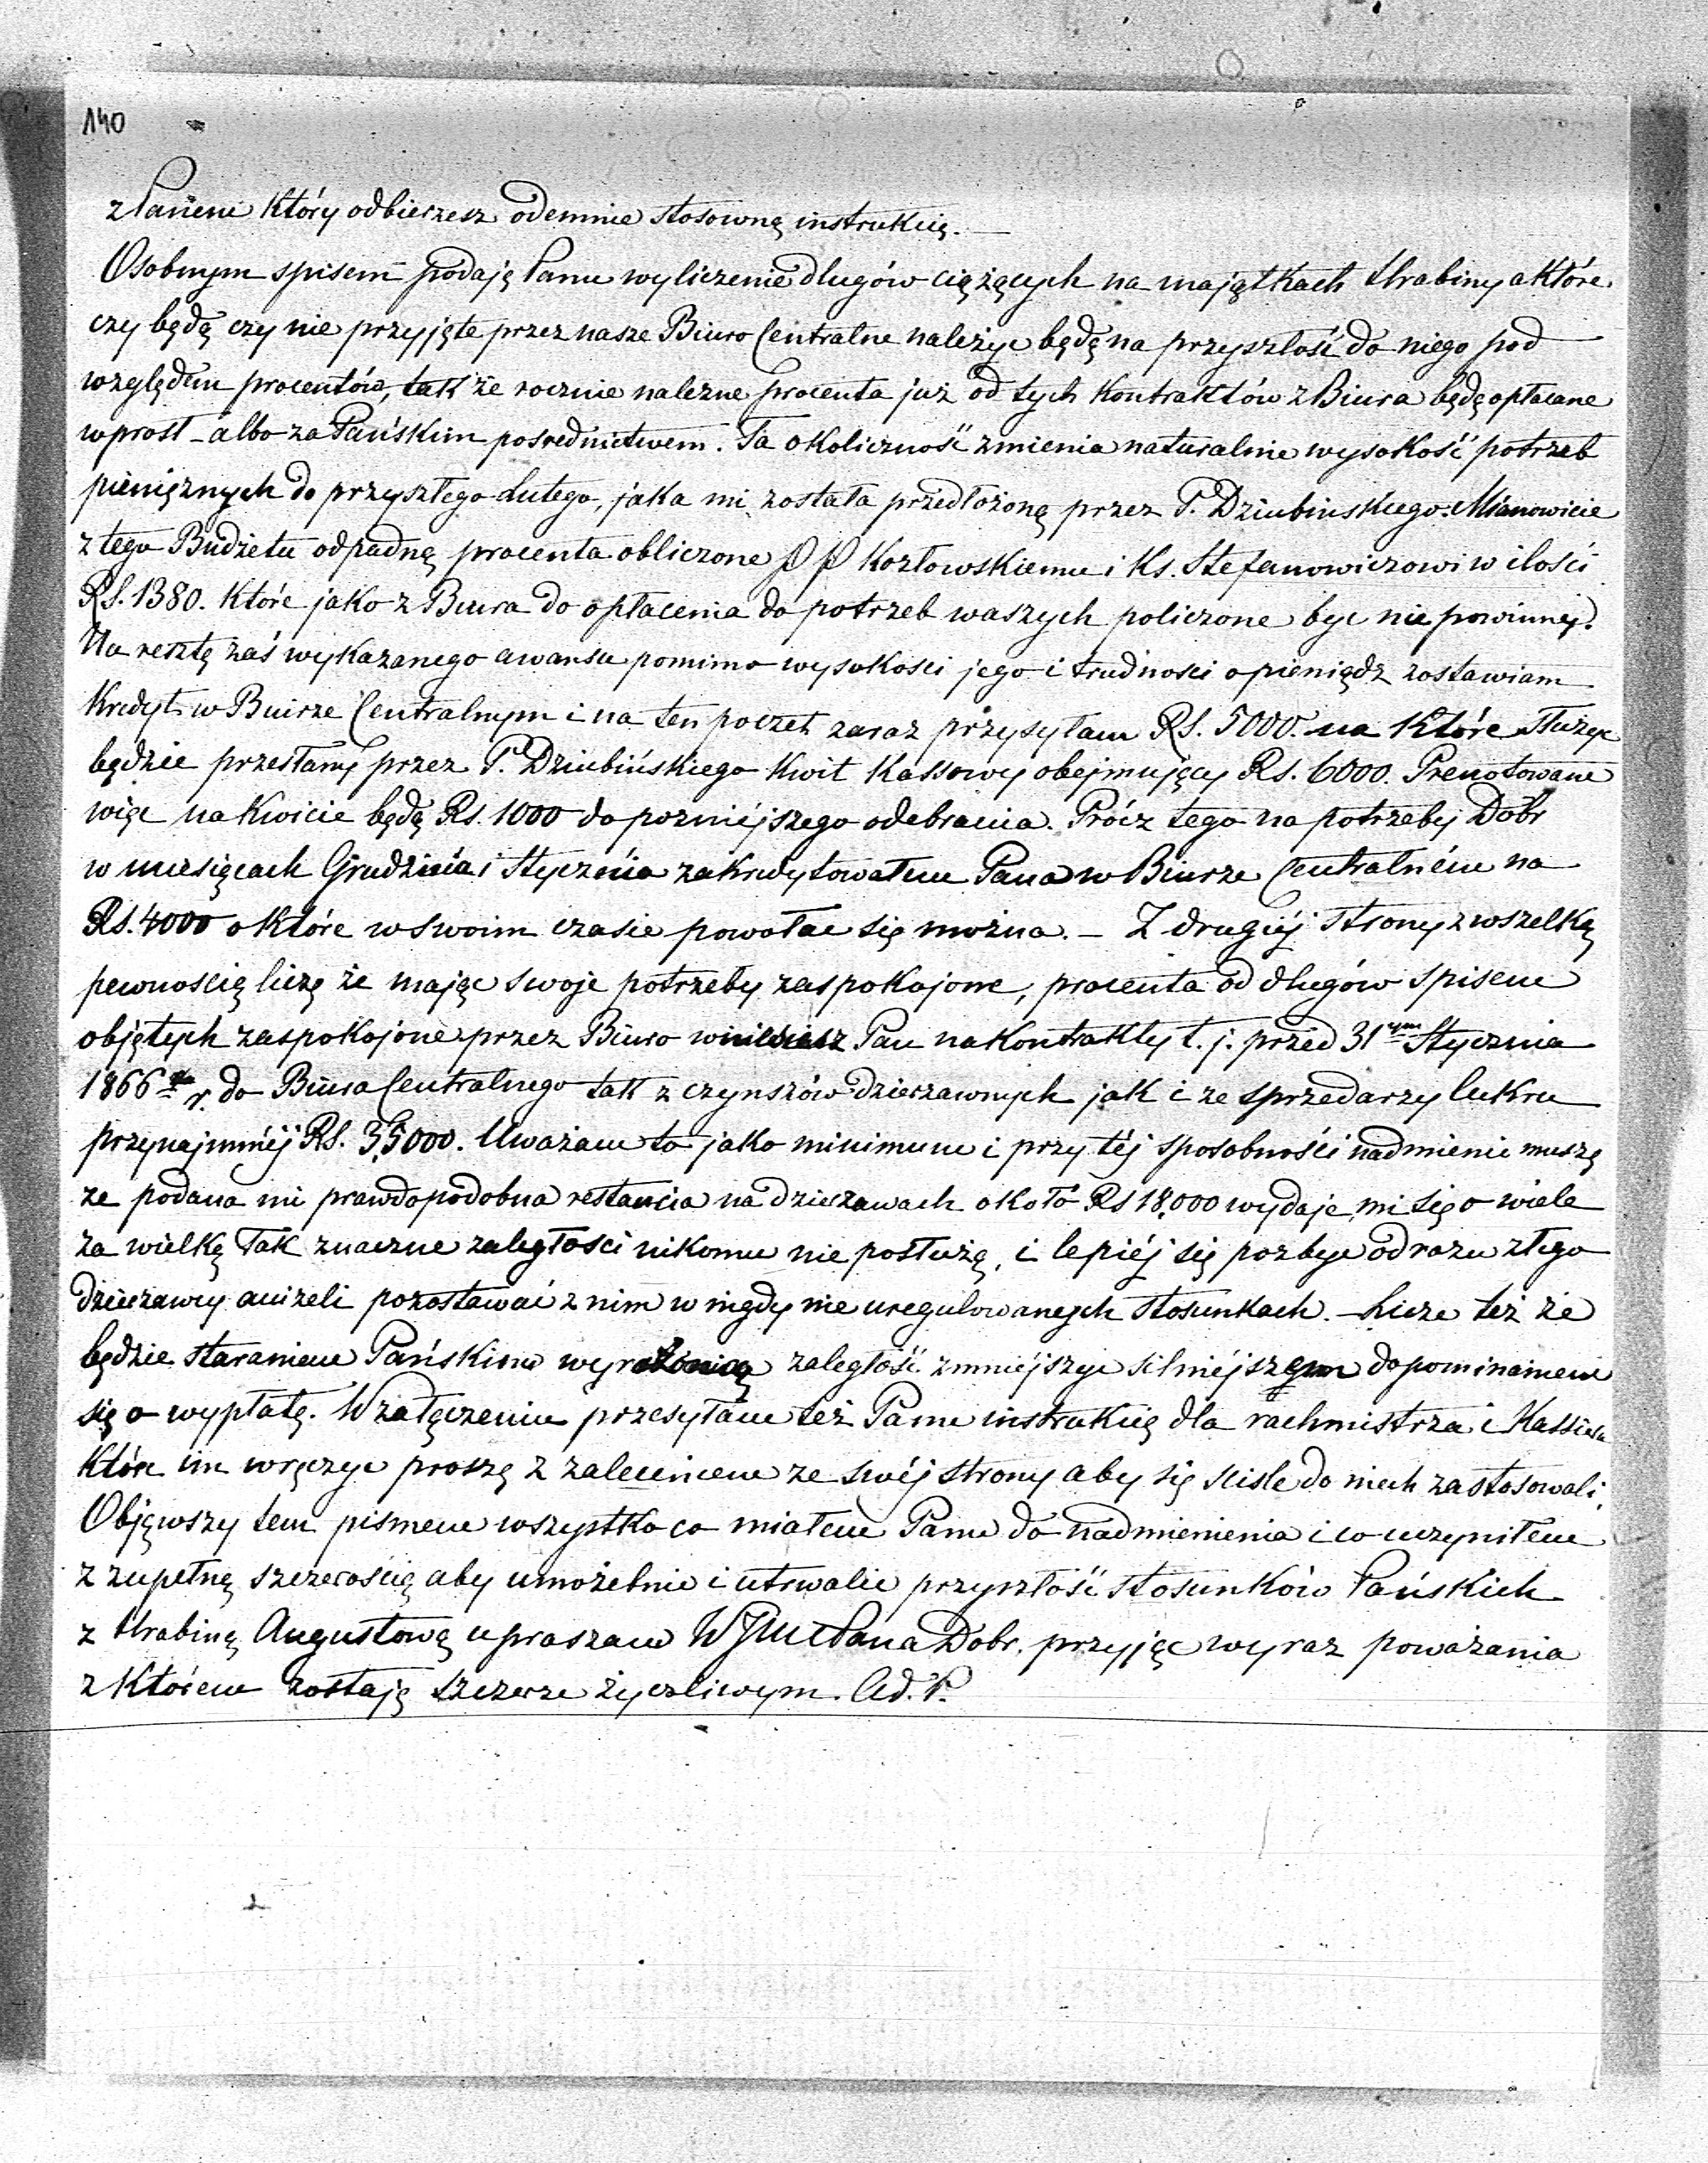 140
z Panem który odbierzesz odemnie stosowną instrukcię. —
Osobnym spisem podaję Panu wyliczenie długów ciążących na majątkach Hrabiny a które
czy będą czy nie przyjęte przez nasze Biuro Centralne należyc będą na przyszłość do niego pod
względem procentów, tak że rocznie należne procenta już od tych Kontraktów z Biura będą opłacane
wprost – albo za Pańskim posrednictwem. Ta okoliczność zmienia naturalnie wysokość potrzeb
pieniężnych do przyszłego Lutego, jaka mi została przedłożoną przez P. Dziubinskiego. Mianowicie
z tego Budżetu odpadną procenta obliczone PP Kozłowskiemu i Ks. Stefanowiczowi w ilości
RS. 1380. Które jako z Biura do opłacenia do potrzeb waszych policzone byc nie powinny.
Na resztę zaś wykazanego awansu pomimo wysokosci jego i trudnosci o pieniądz zostawiam
Kredyt w Buirze Centralnym i na ten poczet zaraz przysyłam RS. 5000. na Które służyc
będzie przesłany przez P. Dziubińskiego Kwit Kassowy obejmujący Rs. 6000. Prenotowane
więc na Kwicie będą Rs. 1000 do pozniéjszego odebrania. Prócz tego na potrzeby Dobr
w miesiącach Grudzinia i Stycznia zakredytowałem Pana w Biurze Centralném na
Rs. 4000 o Które w swoim czasie powołac się można. – Z drugiéj strony z wszelką
pewnoscią liczę że mając swoje potrzeby zaspokojone, procenta od długów spisem
objętych zaspokojone przez Biuro Pan na Kontrakty t. j. przed 31ym Stycznia
1866 r. do Biura Centralnego tak z czynszów dzierzawnych jak i ze sprzedarzy Cukru
przynajmniéj RS. 35,000. Uważam to jako minimum i przy téj sposobności nadmienic muszę
że podana mi prawdopodobna restancia na dzierzawach około Rs 18,000 wydaje mi się o wiele
za wielką Tak znaczne zaległosci nikomu nie posłużą, i lepiéj się pozbyc odrazu złego
dzierzawcy anizeli pozostawać z nim w nigdy nie uregulowanych stosunkach. – Licze też że
będzie staraniem Pańskim wyrażoną zaległość zmniéjszyc silniéjszym dopominaniem
się o wypłatę. W załączeniu przesyłam też Panu instrukcię dla rachmistrza i Kassiera
Które im wręczyc proszę z zaleceniem ze swéj strony aby się scisle do niech zastosowali.
Objąwszy tem pismem wszystko co miałem Panu do nadmienienia i co uczyniłem
z zupełną szczeroscią aby umożebnic i utrwalic przyszłość stosunków Pańskich
z Hrabiną Augustową upraszam WJMcPana Dobr. przyjąc wyraz poważania
z Którem zostaję szczerze życzliwym. Ad. P.